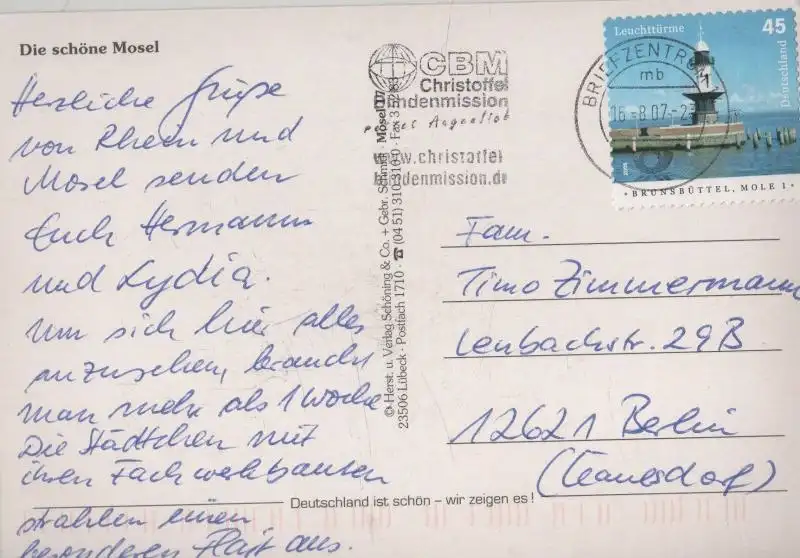 Die schöne Mosel
Herzliche Grüße
von Rhein und
Mosel senden
Euch Hermann
und Lydia.
Um sich hier alles
anzusehen, braucht
man mehr als 1 Woche
Die Städtchen mit
ihren Fachwerkbauten
strahlen einen
besonderen Flair aus.
CBM
Christoffel
Blindenmission
www.christoffel
blindenmission.de
BRIEFZENTRUM
mb
16.-8.07-2
Leuchttürme
45
Deutschland
2005
• BRUNSBÜTTEL, MOLE 1 •
© Herst. u. Verlag Schöning & Co. + Gebr. Schmidt · Mosel 17
23506 Lübeck · Postfach 1710 · ☎ (04 51) 310 310-0 · Fax 3
Fam.
Timo Zimmermann
Lenbachstr. 29B
12621 Berlin
(Kaulsdorf)
Deutschland ist schön – wir zeigen es!